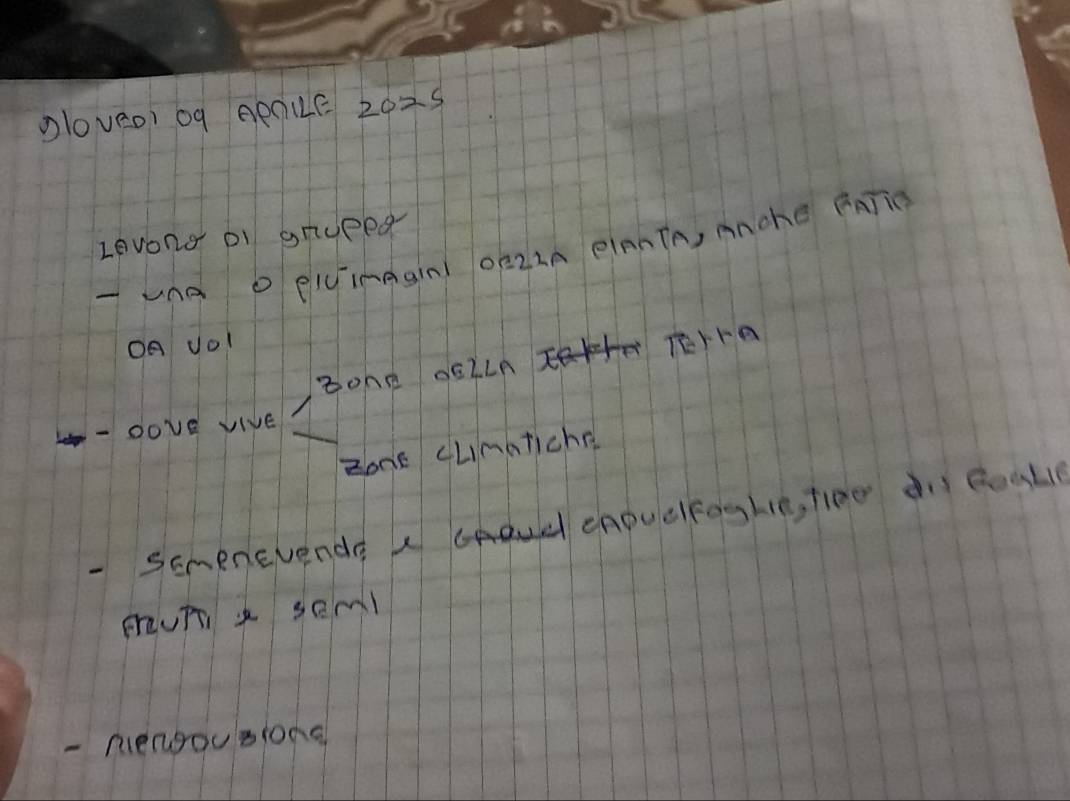 giovedi 09 APRILE 2025
LAVORO DI gruppo
- una o piu imagini DELLA pianTA, AnChE FATTE
DA VOI
- DOVE VIVE
zone DELLA TErrA
zone CLIMATIChe
- SEMPREVErde e CADUCIFoglie, tipo di Foglie
FRUTTI e SEMI